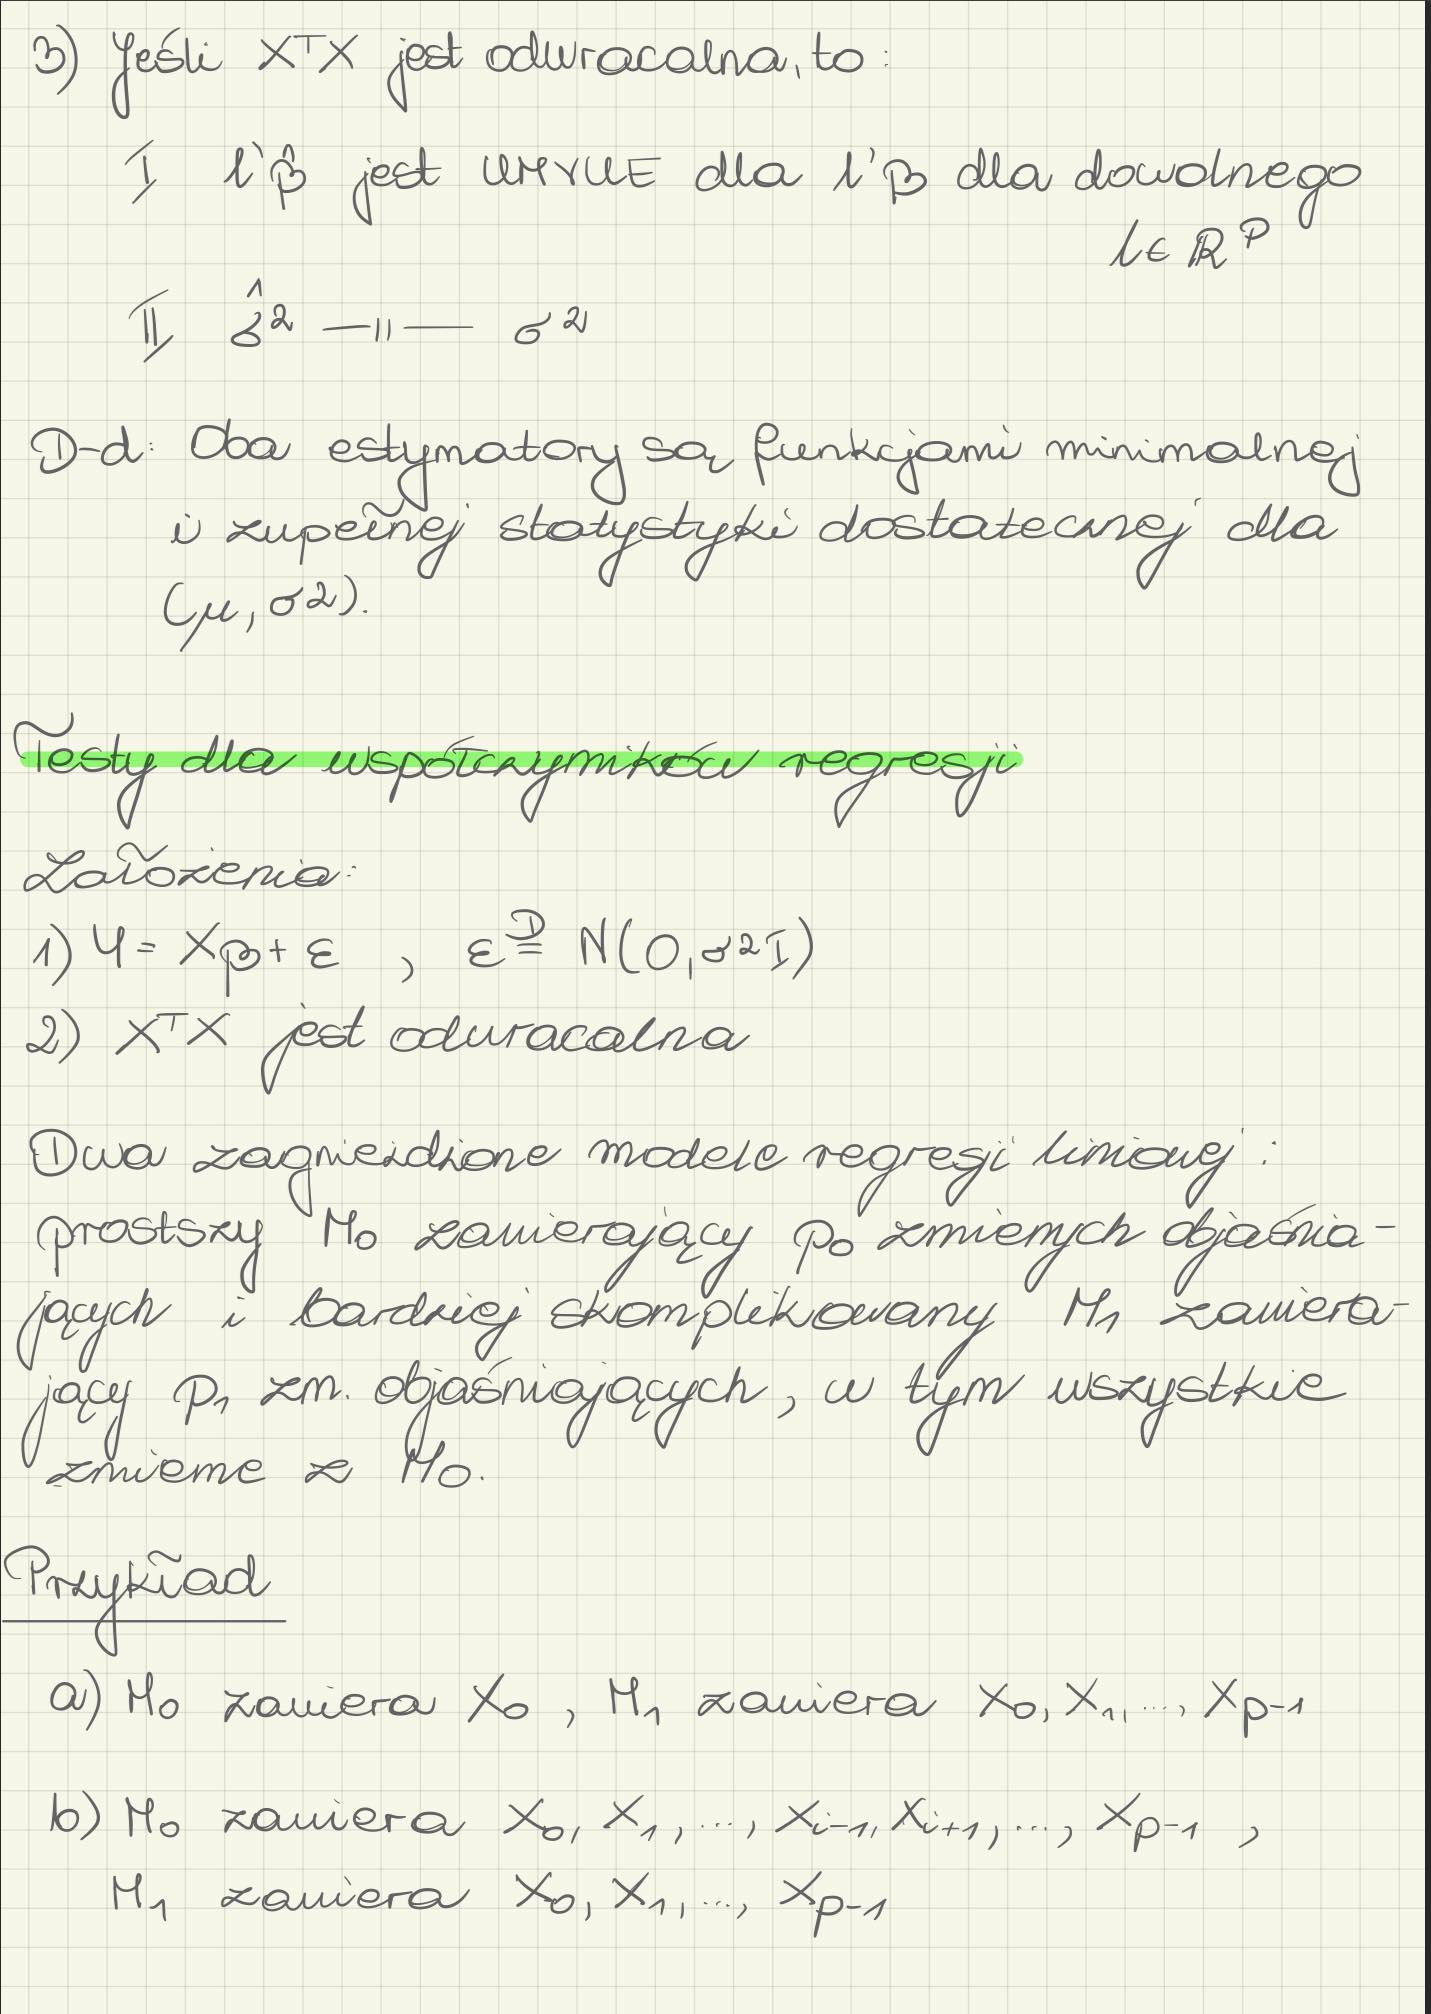 3) Jeśli XᵀX jest odwracalna, to:
I l'β̂ jest UMVUE dla l'β dla dowolnego
l ∈ ℝᵖ
II σ̂² —||— σ²
D-d: Oba estymatory są funkcjami minimalnej
i zupełnej statystyki dostatecznej dla
(μ, σ²).
Testy dla współczynników regresji
Założenia:
1) Y = Xβ + ε , ε =ᴰ N(0, σ²I)
2) XᵀX jest odwracalna
Dwa zagnieżdżone modele regresji liniowej :
prostszy M₀ zawierający p₀ zmiennych objaśnia-
jących i bardziej skomplikowany M₁ zawiera-
jący p₁ zm. objaśniających, w tym wszystkie
zmienne z M₀.
Przykład
a) M₀ zawiera X₀ , M₁ zawiera X₀, X₁, ..., Xₚ₋₁
b) M₀ zawiera X₀, X₁, ..., Xᵢ₋₁, Xᵢ₊₁, ..., Xₚ₋₁ ,
M₁ zawiera X₀, X₁, ..., Xₚ₋₁